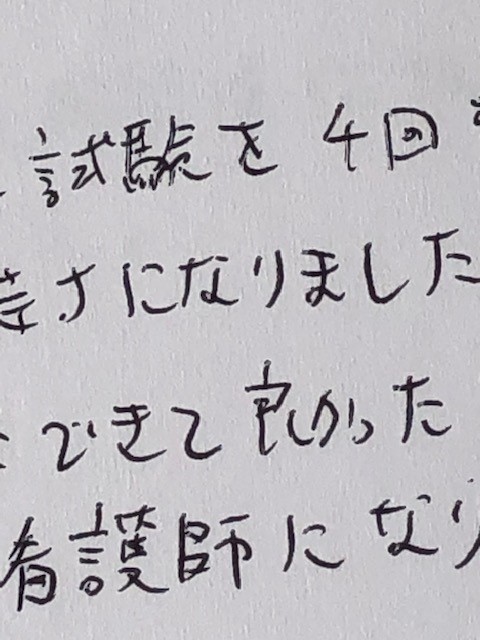 試験を4回
さになりました
できて良かった
看護師になり